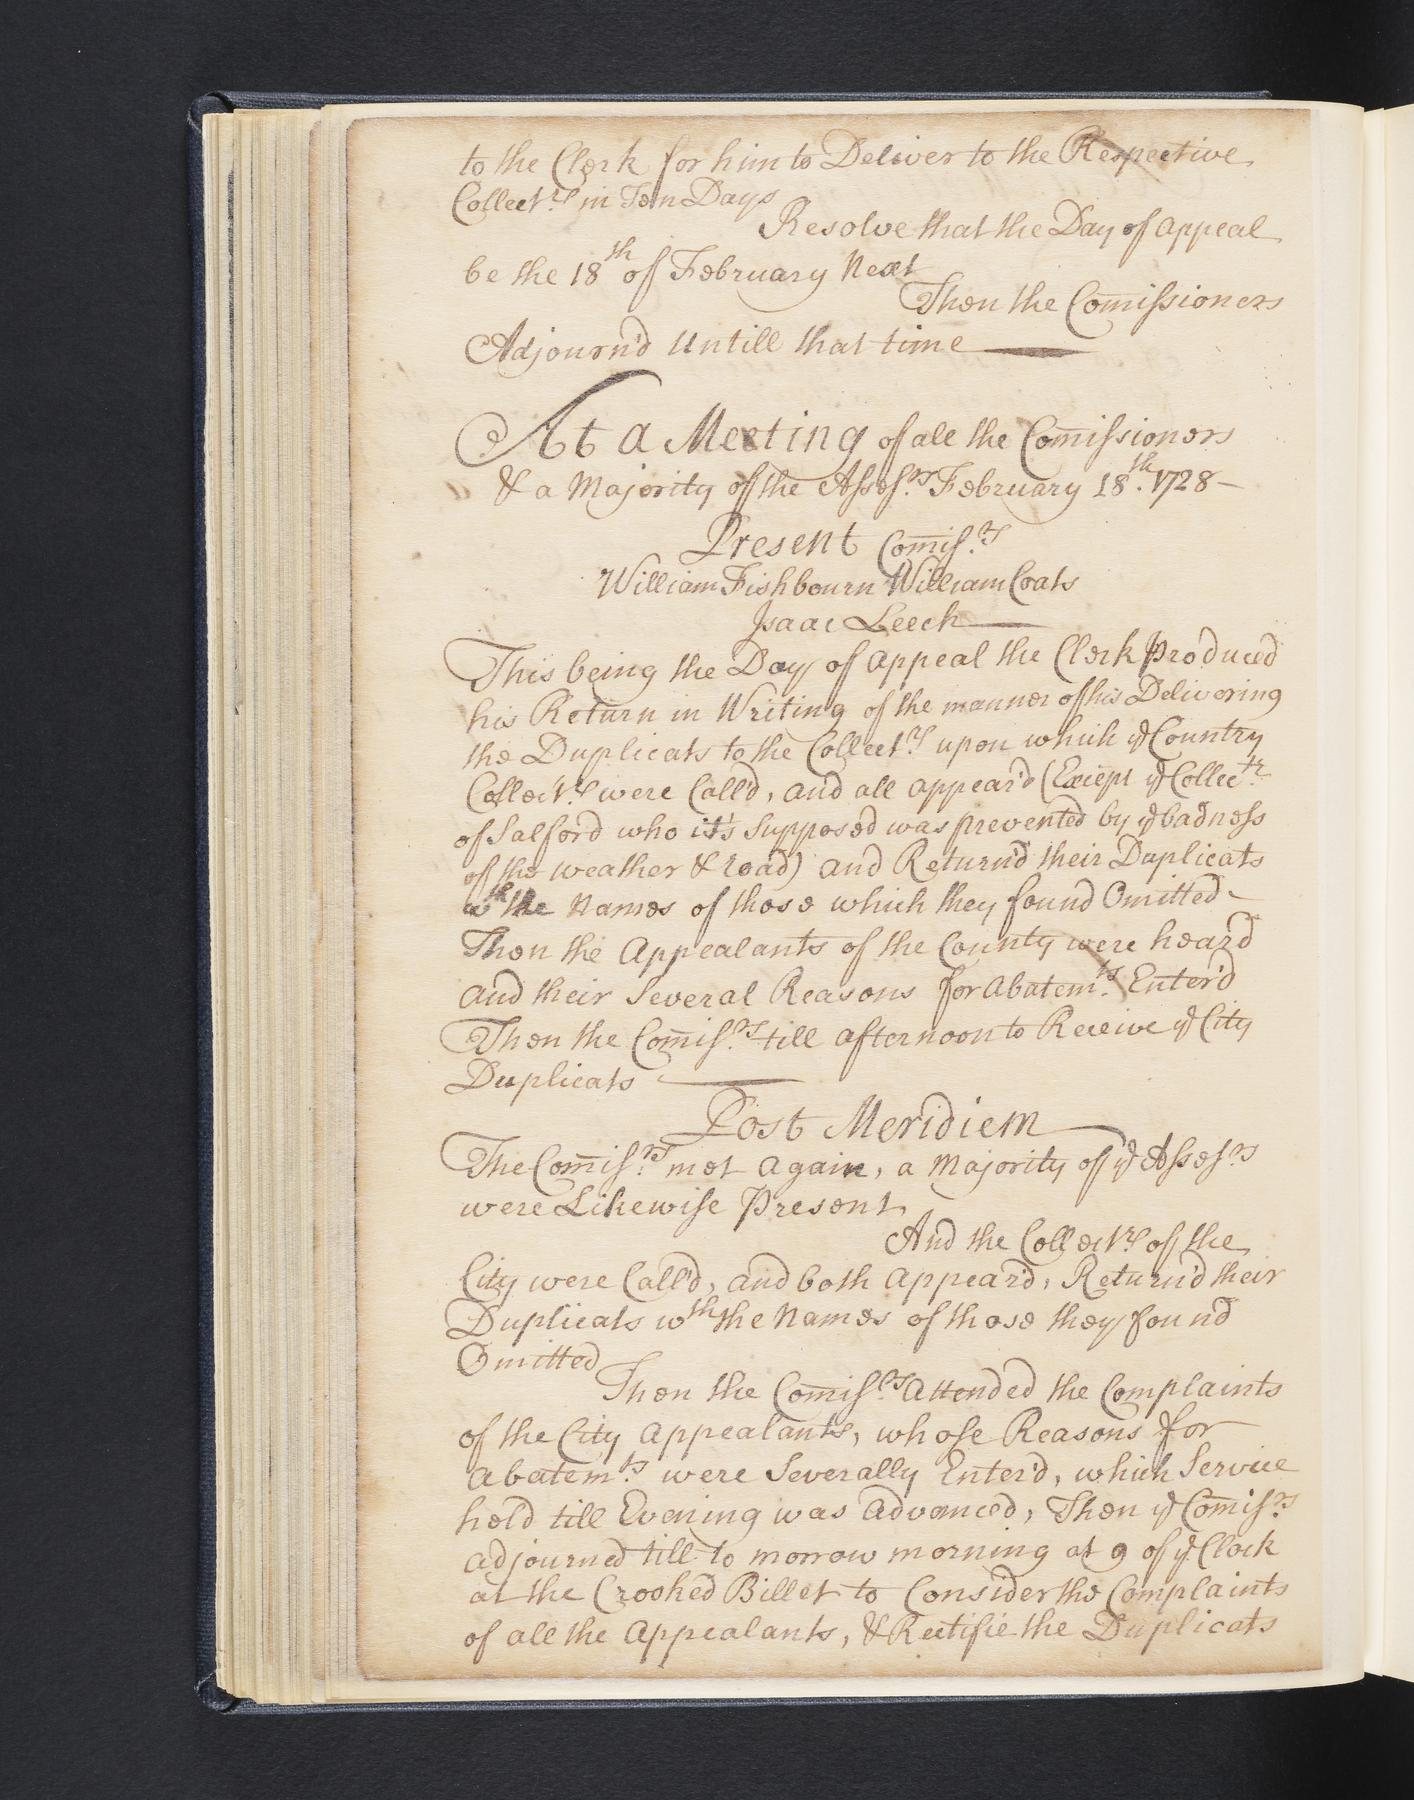 to the Clerk for him to Deliver to the Respective
Collect.rs in Ten Days
Resolve that the Day of appeal
be the 18th of February Next
Then the Com̄issioners
Adjourn'd Untill that time
At a Meeting of all the Com̄issioners
& a Majority of the Asses.rs February 18.th 1728
Present Com̄is.rs
William Fishbourn William Coats
Isaac Leech
This being the Day of appeal the Clerk Produced
his Return in Writing of the manner of his Delivering
the Duplicats to the Collect.rs upon which ye Country
Collect.rs were Call'd, and all appear'd (Except ye Collec.tr
of Salford who it's Supposed was prevented by ye badness
of the weather & road) and Return'd their Duplicats
wth the Names of those which they found Omitted
Then the Appealants of the County were heard
and their Several Reasons for abatem.ts Enter'd
Then the Com̄is.rs till afternoon to Receive ye City
Duplicats
Post Meridiem
The Com̄is.rs met again, a Majority of ye Asses.rs
were Likewise Present
And the Collect.rs of the
City were Call'd, and both appear'd, Return'd their
Duplicats wth the Names of those they found
Omitted
Then the Com̄is.rs attended the Complaints
of the City appealants, whose Reasons for
abatem.ts were Severally Enter'd, which Service
held till Evening was advanced, Then ye Com̄is.rs
adjourned till to morrow morning at 9 of ye Clock
at the Crooked Billet to Consider the Complaints
of all the Appealants, & Rectifie the Duplicats